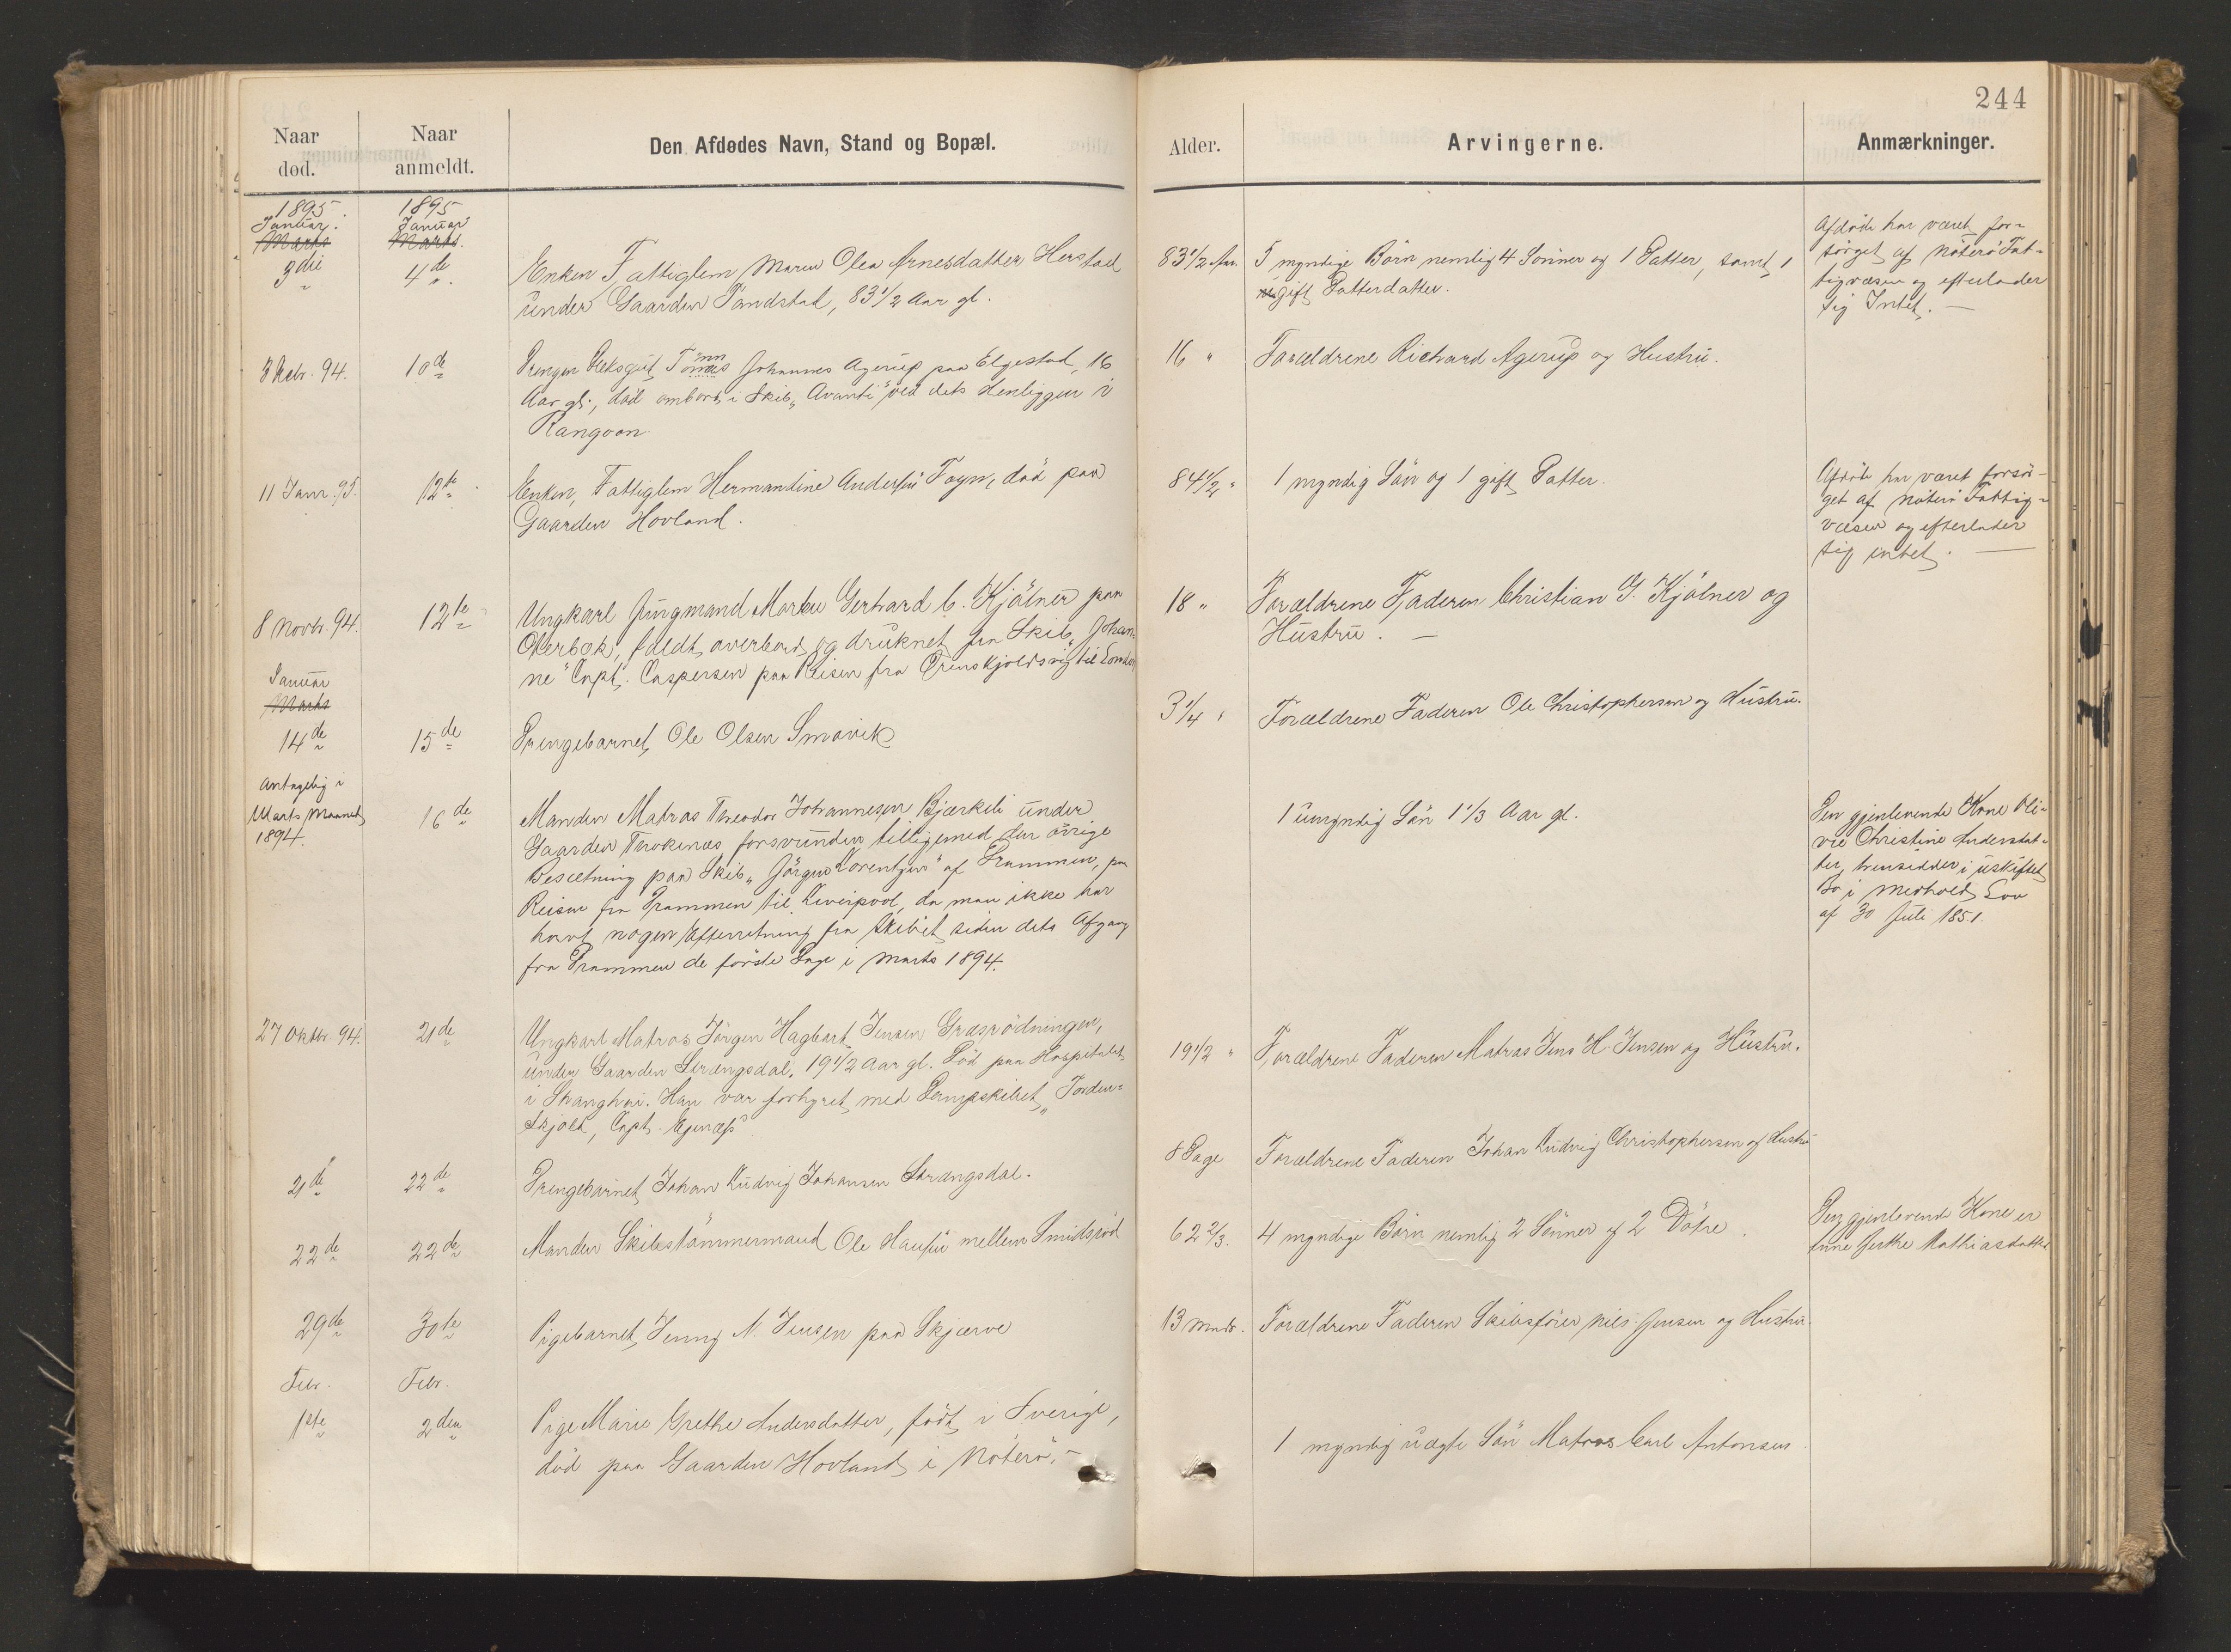 244
Naar død.
Naar anmeldt.
Den Afdødes Navn, Stand og Bopæl.
Alder.
Arvingerne.
Anmærkninger.
1895
1895
Januar.
Januar
Marts
Marts.
3die
4de
Enken Fattiglem Maren Olea Arnesdatter Herstad
under Gaarden Tandstad, 83 1/2 Aar gl.
83 1/2 Aar.
5 myndige Børn nemlig 4 Sønner og 1 Datter, samt 1
gift Datterdatter.
Afdøde har været for-
sørget af Nøterø Fat-
tigvæsen og efterlader
sig Intet. —
3 Febr. 94.
10de
Drengen Dæksgut Tønnes Johannes Agerup paa Elgestad, 16
Aar gl., død ombord i Skib "Avanti" ved dets Henliggen i
Rangoon
16 "
Forældrene Richard Agerup og Hustru.
11 Janr. 95.
12te
Enken, Fattiglem Hermandine Andersen Foyn, død paa
Gaarden Hovland.
84 1/2 "
1 myndig Søn og 1 gift Datter.
Afdøde har været forsør-
get af Nøterø Fattig-
væsen og efterlader
sig intet. —
8 Novbr. 94.
12te
Ungkarl Jungmand Marku Gerhard C. Kjølner paa
Oterbæk, faldt overbord og druknet fra Skib "Johan-
ne" Capt. Caspersen paa Reisen fra Ørenskjoldsvig til London
18 "
Forældrene Faderen Christian G. Kjølner og
Hustru. —
Januar
Marts
14de
15de
Drengebarnet Ole Olsen Smøvik
3 1/4 "
Forældrene Faderen Ole Christophersen og Hustru.
Antagelig i
Marts Maaned
1894.
16de
Manden Matros Theodor Johannesen Bjærkeli under
Gaarden forsvunden tilligemed den øvrige
Besætning paa Skib "Jørgen Lorentzen" af Drammen, paa
Reisen fra Drammen til Liverpool, da man ikke har
havt nogen Efterretning fra Skibet siden dets Afgang
fra Drammen de første Dage i Marts 1894.
1 umyndig Søn 1 1/3 Aar gl.
Den gjenlevende Kone Oli-
vie Christine Andersdat-
ter, hensidder i uskiftet
Bo i Medhold Lov
af 30 Juli 1851.
27 Oktbr 94.
21de
Ungkarl Matros Jørgen Hagbart Jensen Græsrødningen,
under Gaarden Strængsdal, 19 1/2 Aar gl. Død paa Hospitalet
i Shanghai. Han var forhyret med Dampskibet "Torden-
skjold, Capt. Ejenæss
19 1/2 "
Forældrene Faderen Matros Jens H. Jensen og Hustru.
21de
22de
Drengebarnet Johan Ludvig Johansen Strængsdal.
8 Dage
Forældrene Faderen Johan Ludvig Christophersen og Hustru
22de
22de
Manden Skibstømmermand Ole Hansen mellem Smidsrød
62 2/3.
4 myndige Børn nemlig 2 Sønner og 2 Døtre.
Den gjenlevende Kone er
Anne Mathiasdatter
29de
30te
Pigebarnet Jenny N. Jensen paa Skjærve
13 Mndr.
Forældrene Faderen Skibsfører Niels Jensen og Hustru.
Febr.
Febr.
1ste
2den
Pige Marie Grethe Andersdatter, født i Sverige,
død paa Gaarden Hovland i Nøterø. —
1 myndig uægte Søn Matros Carl Antonsen